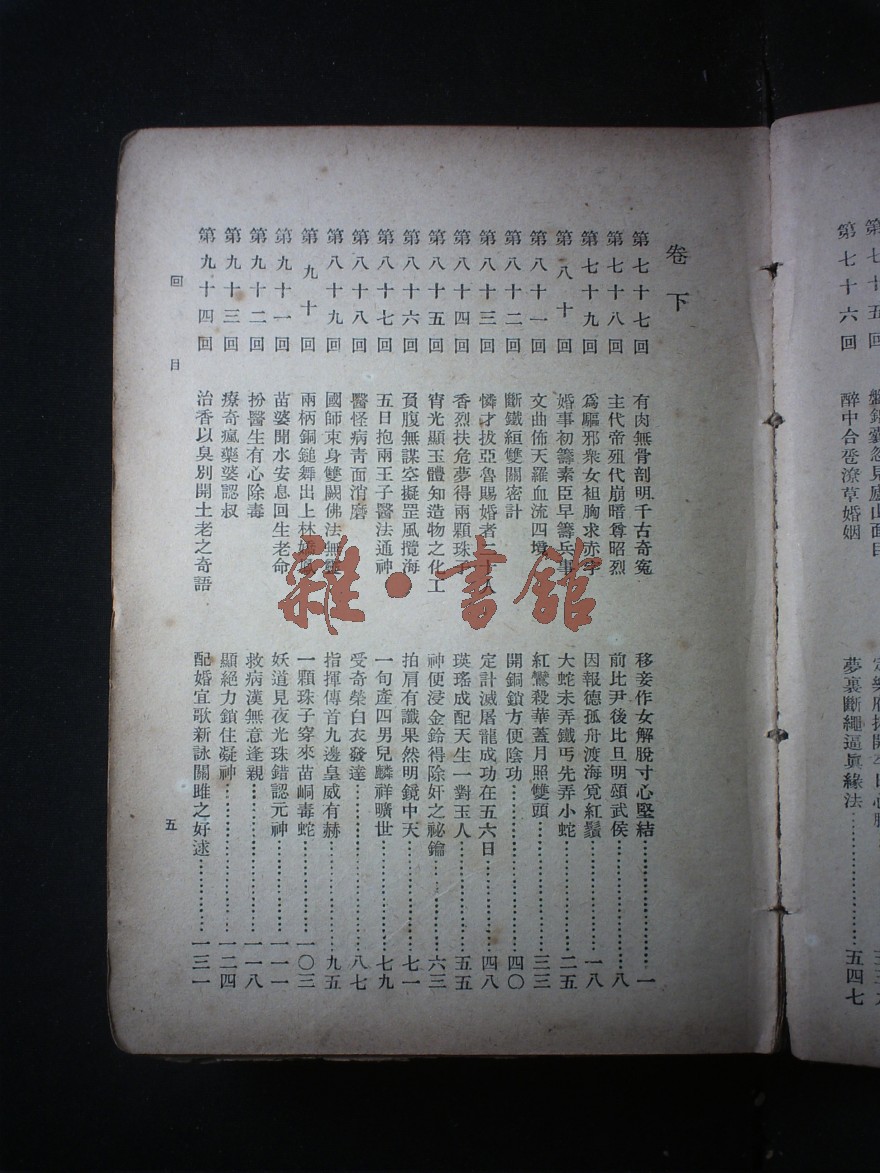 第七十五回
盤錦囊忽見廬山面目
第七十六回 醉中合卺潦草婚姻 夢裏斷繩逼眞緣法…………五四七
卷下
第七十七回 有肉無骨剖明千古奇寃 移妾作女解脫寸心堅結…………一
第七十八回 主代帝殂代崩暗尊昭烈 前比尹後比旦明頌武侯…………八
第七十九回 爲驅邪衆女袒胸求赤字 因報德孤舟渡海覓紅鬚…………一八
第八十回 婚事初籌素臣早籌兵事 大蛇未弄鐵丐先弄小蛇…………二五
第八十一回 文曲佈天羅血流四境 紅鸞殺華蓋月照雙頭…………三三
第八十二回 斷鐵絙雙關密計 開銅鎖方便陰功…………四〇
第八十三回 憐才拔亞魯賜婚者二十八 定計滅屠龍成功在五六日…………四八
第八十四回 香烈扶危夢得兩顆珠子 瑛瑤成配天生一對玉人…………五五
第八十五回 宵光顯玉體知造物之化工 神便浸金鈴得除奸之祕鑰…………六三
第八十六回 貟腹無謀空擬罡風攬海 拍肩有讖果然明鏡中天…………七一
第八十七回 五日抱兩王子醫法通神 一句產四男兒麟祥曠世…………七九
第八十八回 醫怪病青面消磨 受奇榮白衣發達…………八七
第八十九回 國師束身雙闕佛法無靈 指揮傳首九邊皇威有赫…………九五
第九十回 兩柄銅鎚舞出上林嬌鳳 一顆珠子穿來苗峒毒蛇…………一〇三
第九十一回 苗婆開水安息回生老命 妖道見夜光珠錯認元神…………一一一
第九十二回 扮醫生有心除毒 救病漢無意逢親…………一一八
第九十三回 療奇瘋藥婆認叔 顯絕力鎖住凝神…………一二四
第九十四回 治香以臭別開土老之奇語 配婚宜歌新詠關雎之好逑…………一三一
回目
五
雜·書館